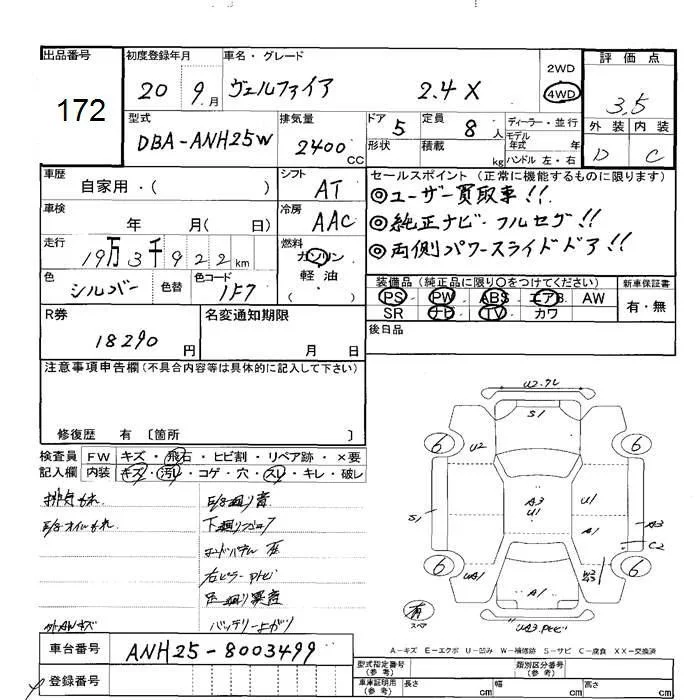 出品番号
172
初度登録年月
20 9月
車名・グレード
ヴェルファイア 2.4X
2WD
4WD
評価点
3,5
外装 内装
D C
型式
DBA-ANH25W
排気量
2400 CC
ドア 5
形状
定員 8人
積載 kg
ディーラー・並行
モデル年式 年
ハンドル 左・右
車歴
自家用・( )
シフト
AT
車検
年 月( 日)
冷房
AAC
走行
19万3千922km
燃料
ガソリン
軽油
( )
色
シルバー
色替
色コード
1F7
セールスポイント(正常に機能するものに限ります)
◎ユーザー買取車!!
◎純正ナビ・フルセグ!!
◎両側パワースライドドア!!
装備品(純正品に限り○をつけてください)
PS PW ABS エアB. AW
SR ナビ TV カワ
新車保証書
有・無
後日品
R券
18290円
名変通知期限
月 日
注意事項申告欄(不具合内容等は具体的に記入して下さい)
修復歴 有 〔箇所 〕
検査員記入欄
FW キズ・飛石・ヒビ割・リペア跡・×要
内装 キズ・汚レ・コゲ・穴・スレ・キレ・破レ
排気もれ
E/gオイルもれ
下廻りサビ
外AWキズ
バッテリー上がり
U2.アL
S1
6
6
U2
A3
U1
U1
A1
S1
A3
C2
UA1
6
6
A1
有
スペア
A-キズ E-エクボ U-凹み W-補修跡 S-サビ C-腐食 XX-交換済
車台番号
ANH25-8003499
登録番号
型式指定番号(参考)
類別区分番号(参考)
車庫証明用(参考)
長さ cm
幅 cm
高さ cm